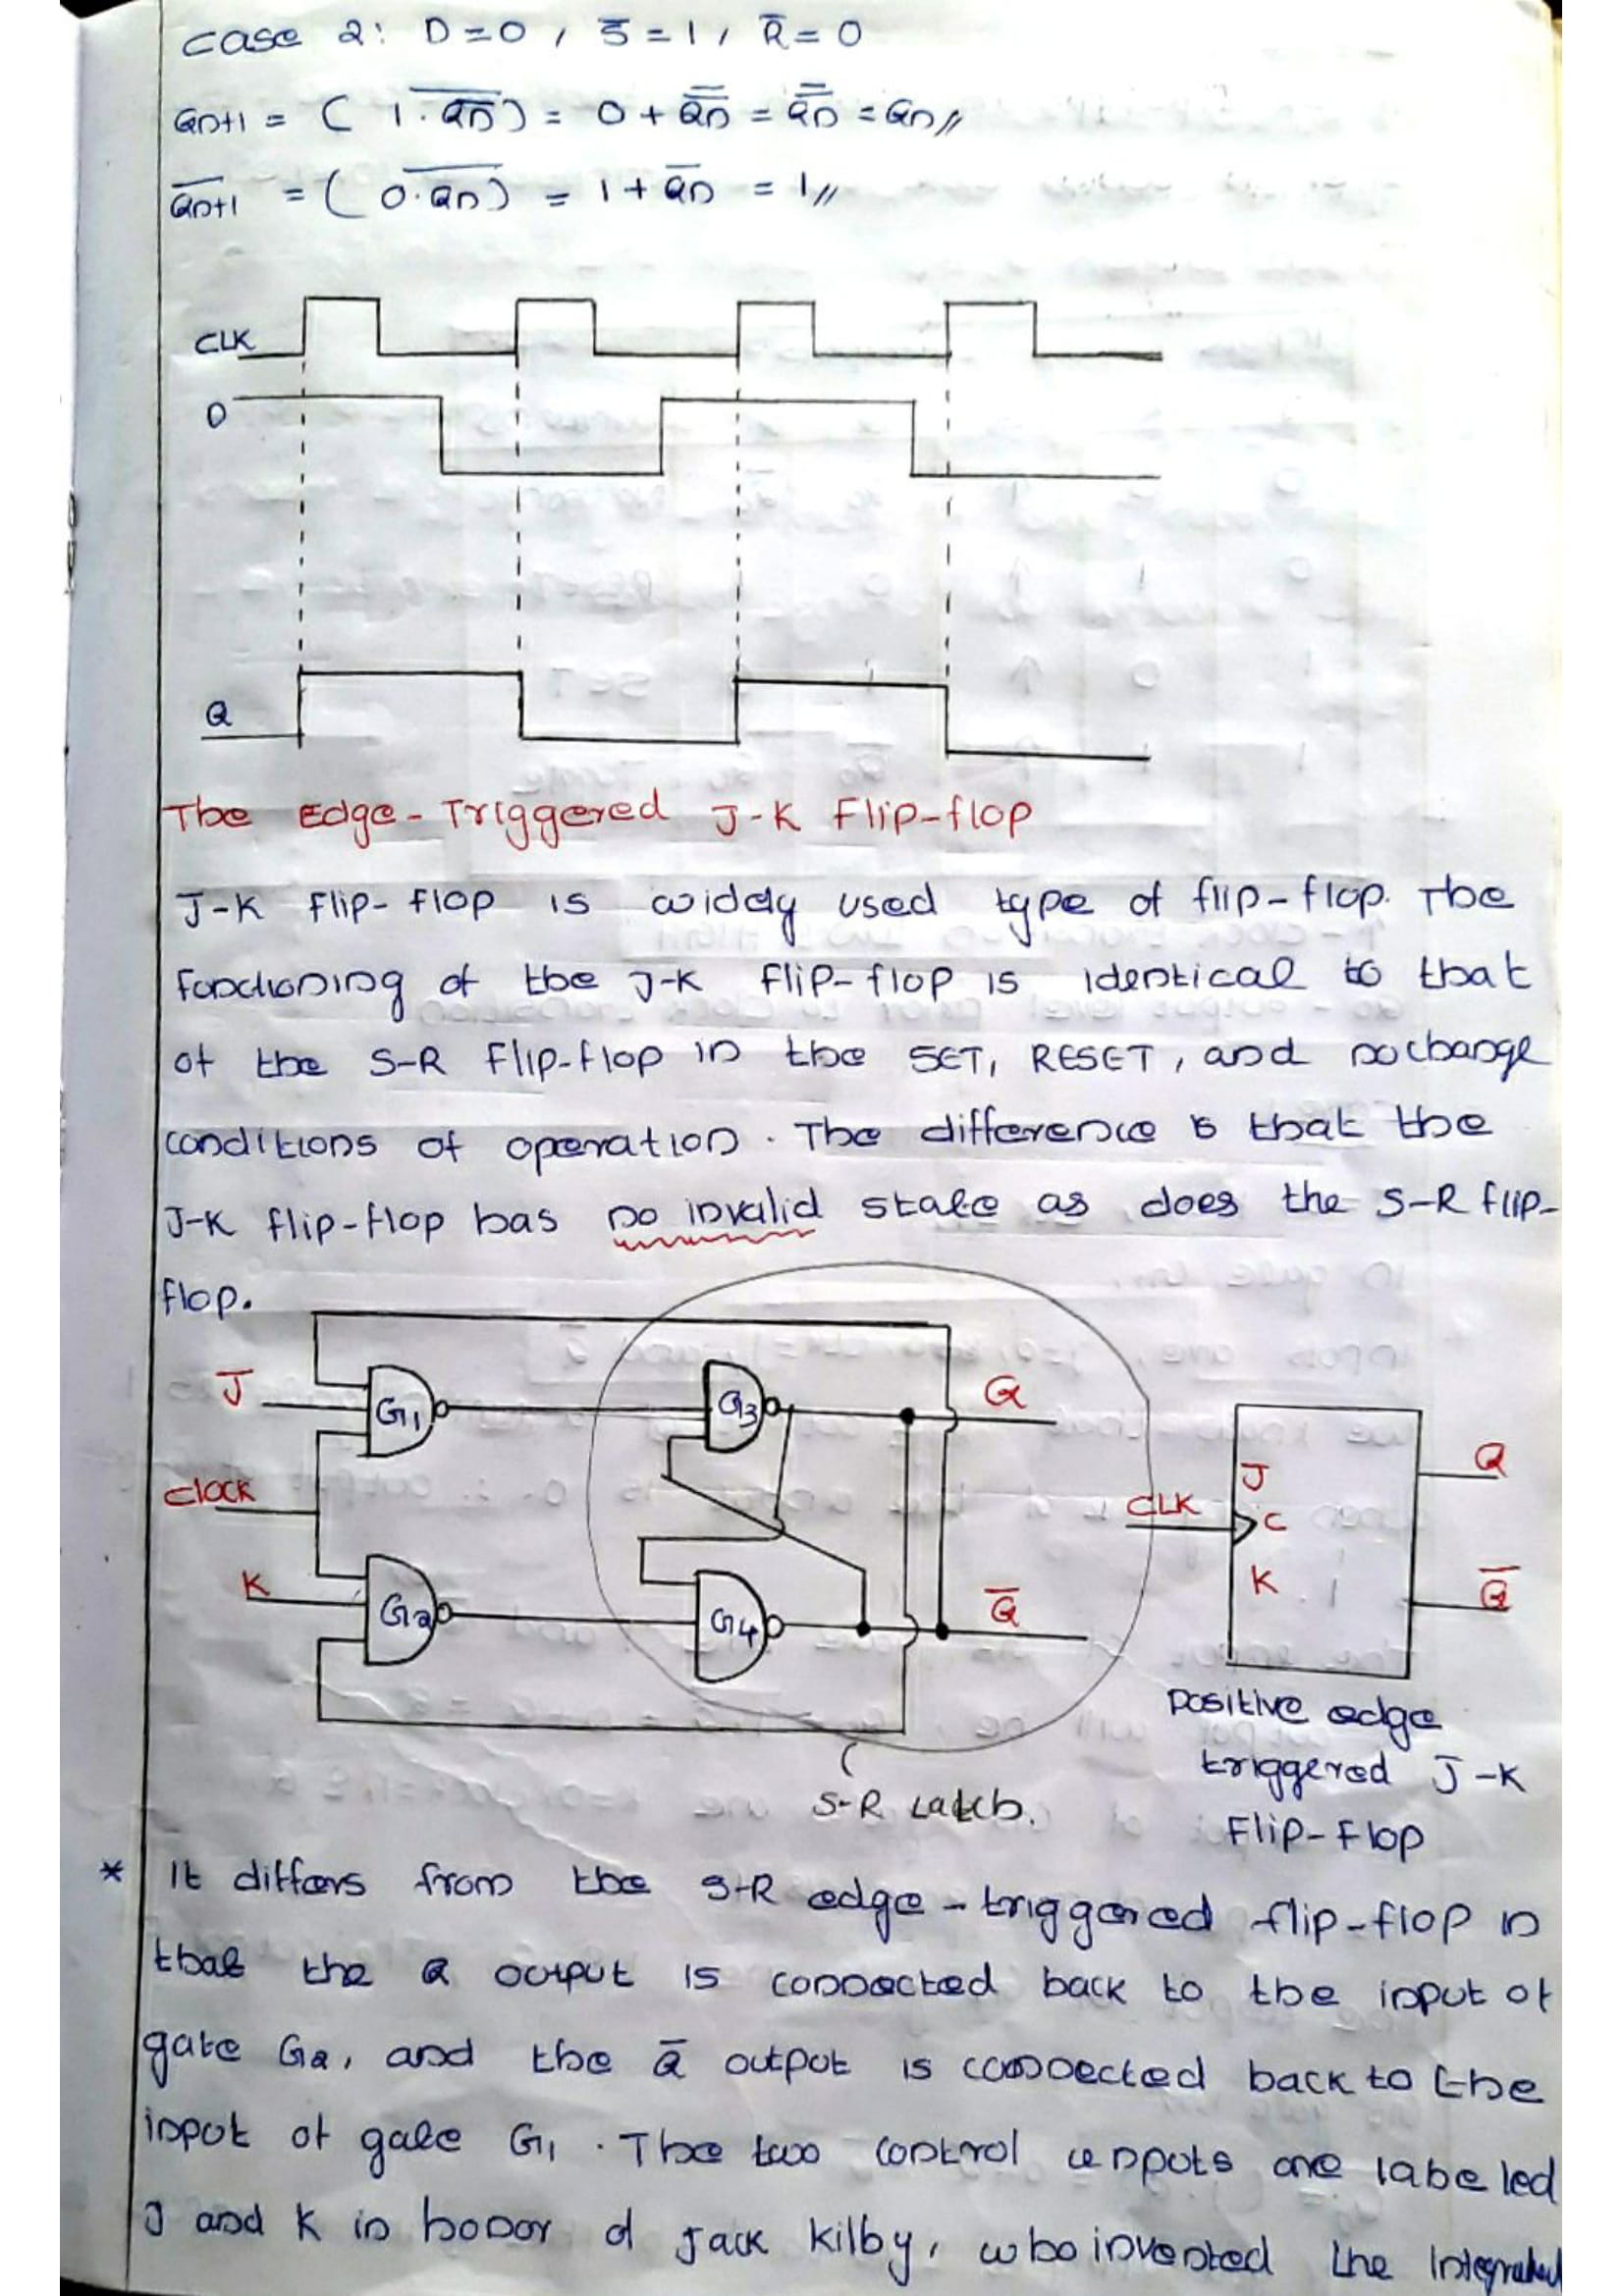 case 2: D=0, S̅=1, R̅=0
Qn+1 = ( 1.Q̅n̅ ) = 0 + Q̿n = Q̿n = Qn //
Q̅n+1 = ( 0.Qn ) = 1 + Q̅n = 1 //
CLK
D
Q
The Edge-Triggered J-K Flip-flop
J-K Flip-flop is widely used type of flip-flop. The
functioning of the J-K flip-flop is identical to that
of the S-R flip-flop in the SET, RESET, and nochange
conditions of operation. The difference is that the
J-K flip-flop has no invalid state as does the S-R flip-
flop.
J G1 G3 Q
clock
K G2 G4 Q̅
S-R Latch.
J Q
CLK C
K Q̅
positive edge
triggered J-K
Flip-Flop
* It differs from the S-R edge-triggered flip-flop in
that the Q output is connected back to the input of
gate G2, and the Q̅ output is connected back to the
input of gate G1. The two control inputs are labeled
J and K in honor of Jack Kilby, who invented the Integrated